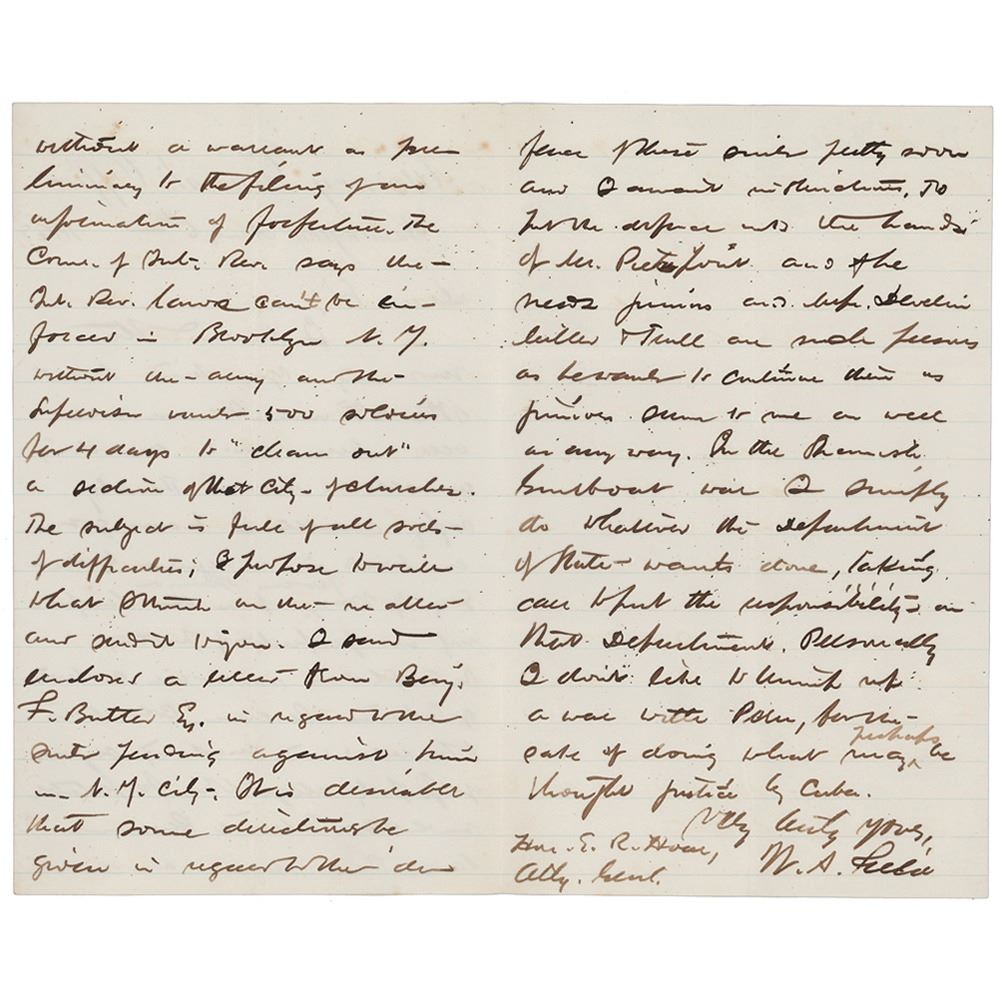 without a warrant as pre-
liminary to the filing of an
information of forfeiture. The
Comr. of Int. Rev. says the
Int. Rev. laws can't be en-
forced in Brooklyn N.Y.
without the army and the
Supervisor wants 500 soldiers
for 4 days to "clean out"
a section of that City of churches.
The subject is full of all sorts
of difficulties; I propose to write
what I think on the matter
and send it to you. I send
enclosed a letter from Benj.
F. Butler Esq. in regard to the
suits pending against him
in N.Y. City. It is desirable
that some directions be
given in regard to the de-
fence of these suits pretty soon
and I await instructions. To
put the defence into the hands
of Mr. Pierrepoint and the
juniors and
are such persons
as to continue them as
juniors seem to me as well
as any way. In the
Gunboat war I simply
do whatever the Department
of State wants done, taking
care to put the responsibility on
that Department. Personally
I don't like to
a war with Peru, for the
sake of doing what may perhaps be
thought justice by Cuba.
Very truly yours,
Hon. E. R. Hoar,
Atty. Genl.
W. A. Field